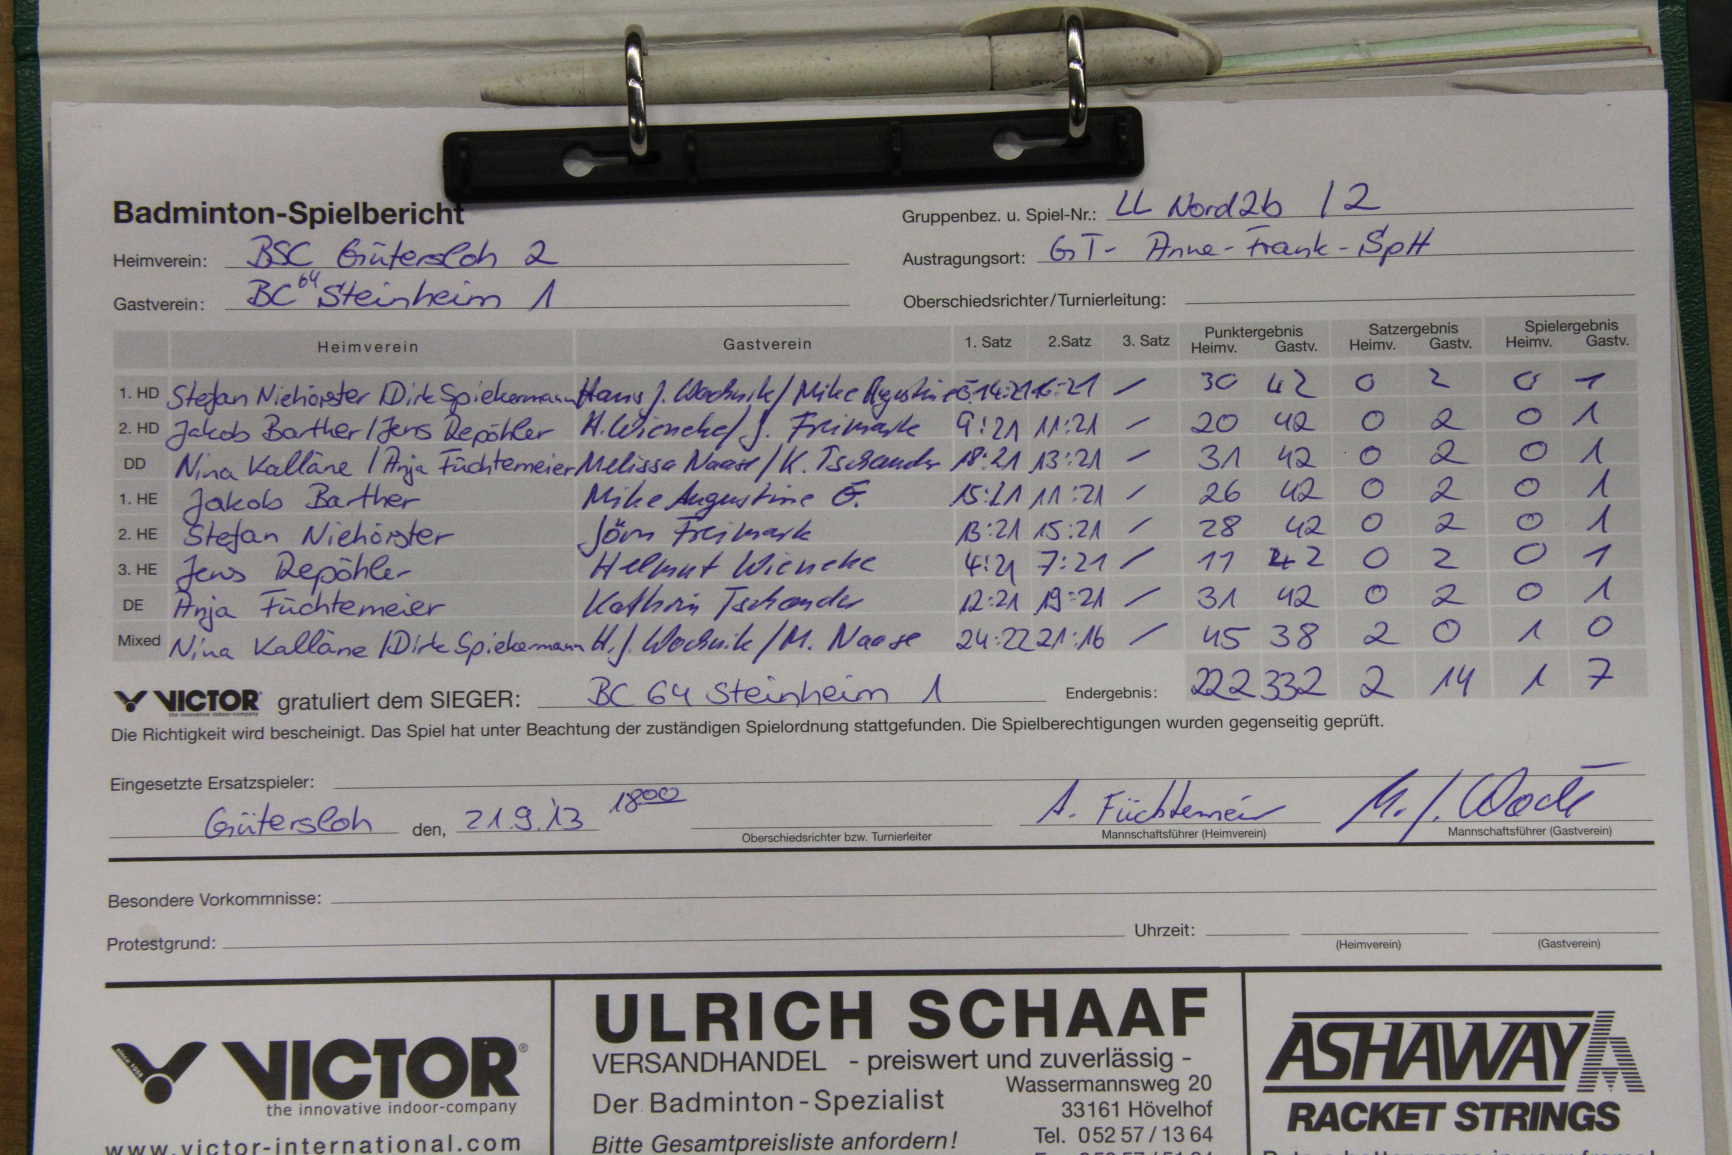 Badminton-Spielbericht
Gruppenbez. u. Spiel-Nr.: LL Nord2b / 2
Heimverein: BSC Gütersloh 2
Austragungsort: GT- Anne-Frank-SpH
Gastverein: BC 64 Steinheim 1
Oberschiedsrichter/Turnierleitung:
Heimverein Gastverein 1. Satz 2.Satz 3. Satz Punktergebnis Heimv. Gastv. Satzergebnis Heimv. Gastv. Spielergebnis Heimv. Gastv.
1. HD Stefan Niehörster / Dirk Spiekermann Hans J. Wochnik / Mike Agustine G. 14:21 16:21 / 30 42 0 2 0 1
2. HD Jakob Barther / Jens Depöhler H. Wieneke / J. Freimark 9:21 11:21 / 20 42 0 2 0 1
DD Nina Kalläne / Anja Füchtemeier Melissa Naase / K. Tschander 18:21 13:21 / 31 42 0 2 0 1
1. HE Jakob Barther Mike Augustine G. 15:21 11:21 / 26 42 0 2 0 1
2. HE Stefan Niehörster Jörn Freimark 13:21 15:21 / 28 42 0 2 0 1
3. HE Jens Depöhler Helmut Wieneke 4:21 7:21 / 11 42 0 2 0 1
DE Anja Füchtemeier Kathrin Tschander 12:21 19:21 / 31 42 0 2 0 1
Mixed Nina Kalläne / Dirk Spiekermann H.J. Wochnik / M. Naase 24:22 21:16 / 45 38 2 0 1 0
VICTOR gratuliert dem SIEGER: BC 64 Steinheim 1 Endergebnis: 222 332 2 14 1 7
Die Richtigkeit wird bescheinigt. Das Spiel hat unter Beachtung der zuständigen Spielordnung stattgefunden. Die Spielberechtigungen wurden gegenseitig geprüft.
Eingesetzte Ersatzspieler:
Gütersloh den, 21.9.13 18:00 A. Füchtemeier
Oberschiedsrichter bzw. Turnierleiter Mannschaftsführer (Heimverein) Mannschaftsführer (Gastverein)
Besondere Vorkommnisse:
Protestgrund: Uhrzeit:
(Heimverein) (Gastverein)
VICTOR®
the innovative indoor-company
www.victor-international.com
ULRICH SCHAAF
VERSANDHANDEL - preiswert und zuverlässig -
Der Badminton-Spezialist
Wassermannsweg 20
33161 Hövelhof
Bitte Gesamtpreisliste anfordern!
Tel. 05257/1364
ASHAWAY
RACKET STRINGS